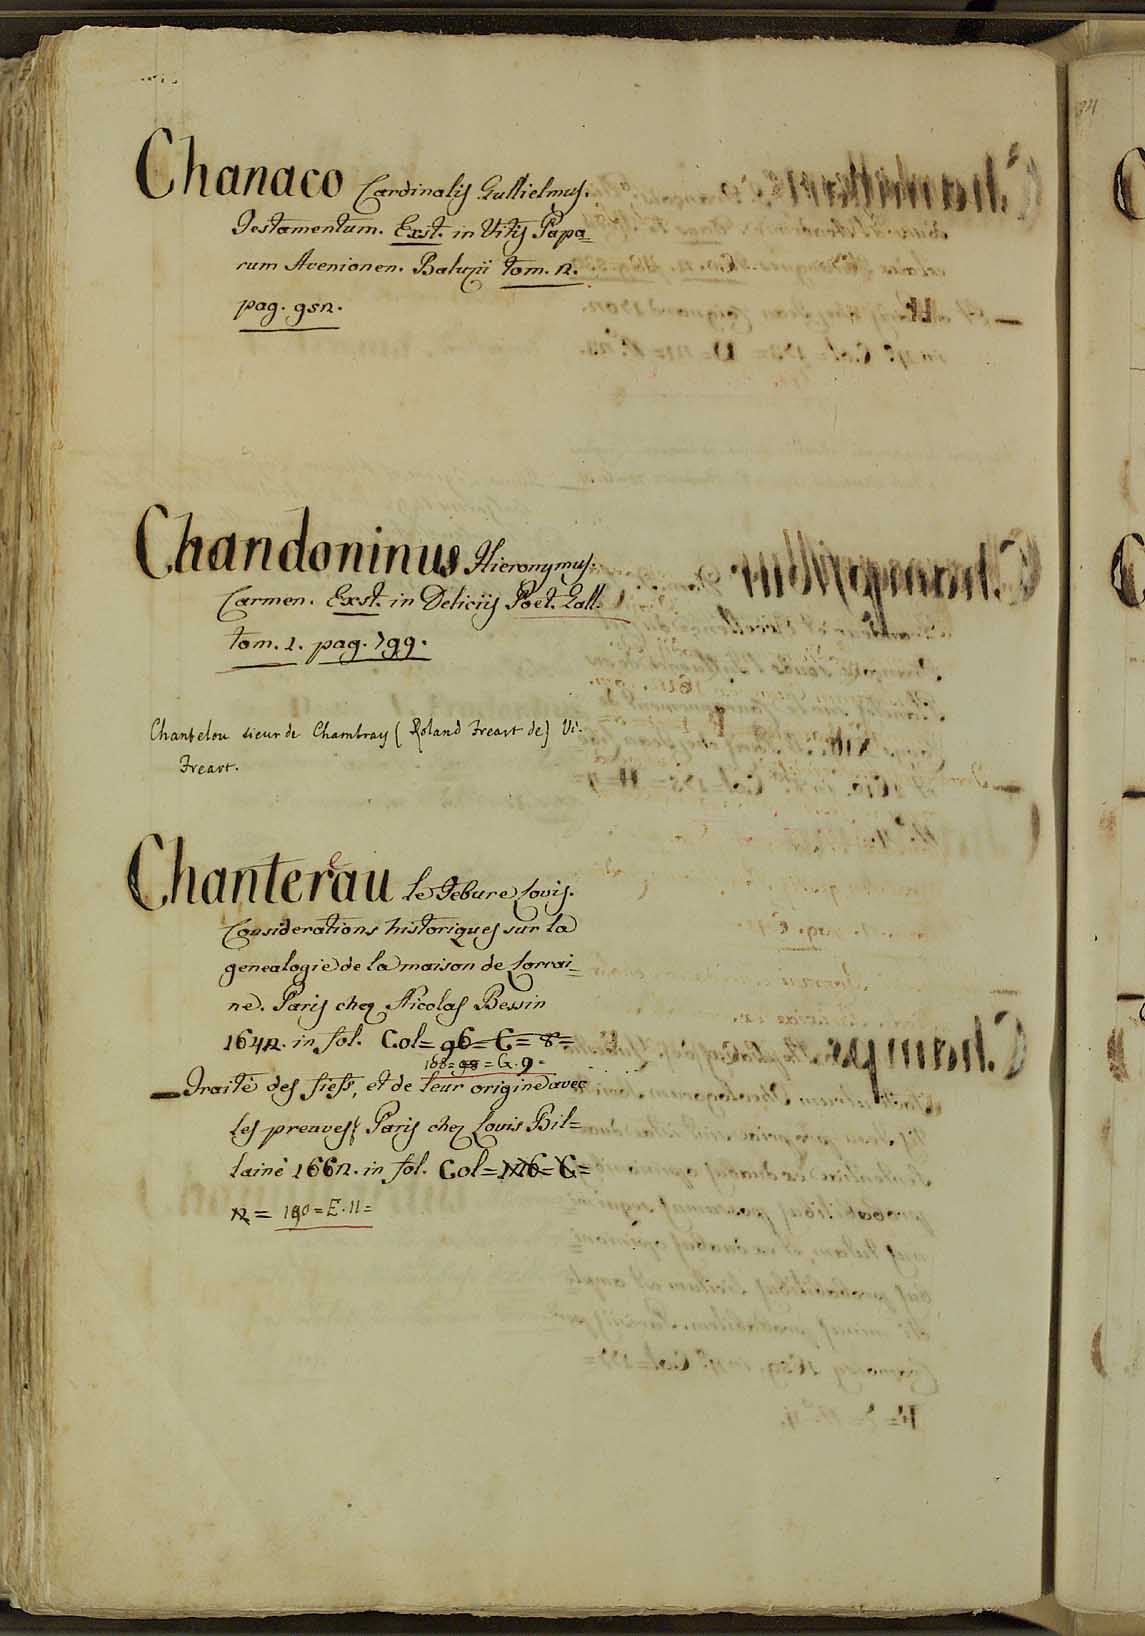 Chanaco Cardinalis Gullielmus.
Testamentum. Exst. in Vitis Papa=
rum Avenionen. Baluzii tom. 2.
pag. 952.
Chandoninus Hieronymus.
Carmen. Exst. in Deliciis Poet. Gall.
tom. 1. pag. 799.
Chantelou sieur de Chambray (Roland Freart de) Vi.
Freart.
Chanterau le Febure Louis.
Considerations historiques sur la
genealogie de la maison de Lorrai=
ne. Paris chez Nicolas Bessin
1642. in fol. Col= 96= C= 8=
188= 98 = G. 9=
Traité des fiefs, et de leur origine avec
les preuves. Paris chez Louis Bil=
laine 1662. in fol. Col= 126= C=
12 = 190= E. 11=